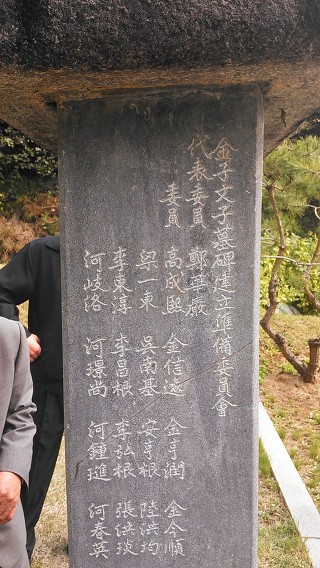 金子文子墓碑建立準備委員會
代表委員 鄭華巖
委員 高成熙 金信遠 金亨潤 金今順
梁一東 吳南基 安亨根 陸洪均
李東淳 李昌根 李弘根 張洪琰
河岐洛 河璟尚 河鍾璡 河春英